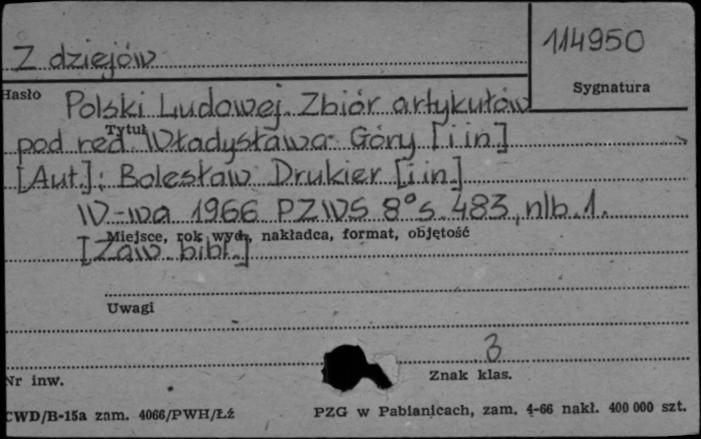 114950
Z dziejów
Sygnatura
Hasło
Polski Ludowej. Zbiór artykułów
Tytuł
pod red. Władysława Góry [i in.]
[Aut.]: Bolesław Drukier [i in.]
W-wa 1966 PZWS 8° s. 483, nlb. 1.
Miejsce, rok wyd., nakładca, format, objętość
[Zaw. bibl.]
Uwagi
3
Nr inw.
Znak klas.
CWD/B-15a zam. 4066/PWH/Łź
PZG w Pabianicach, zam. 4-66 nakł. 400 000 szt.